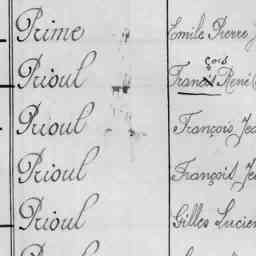 Prime Emile Pierre
çois
Prioul Francs René
Prioul François Jea
Prioul François Je
Prioul Gilles Lucien